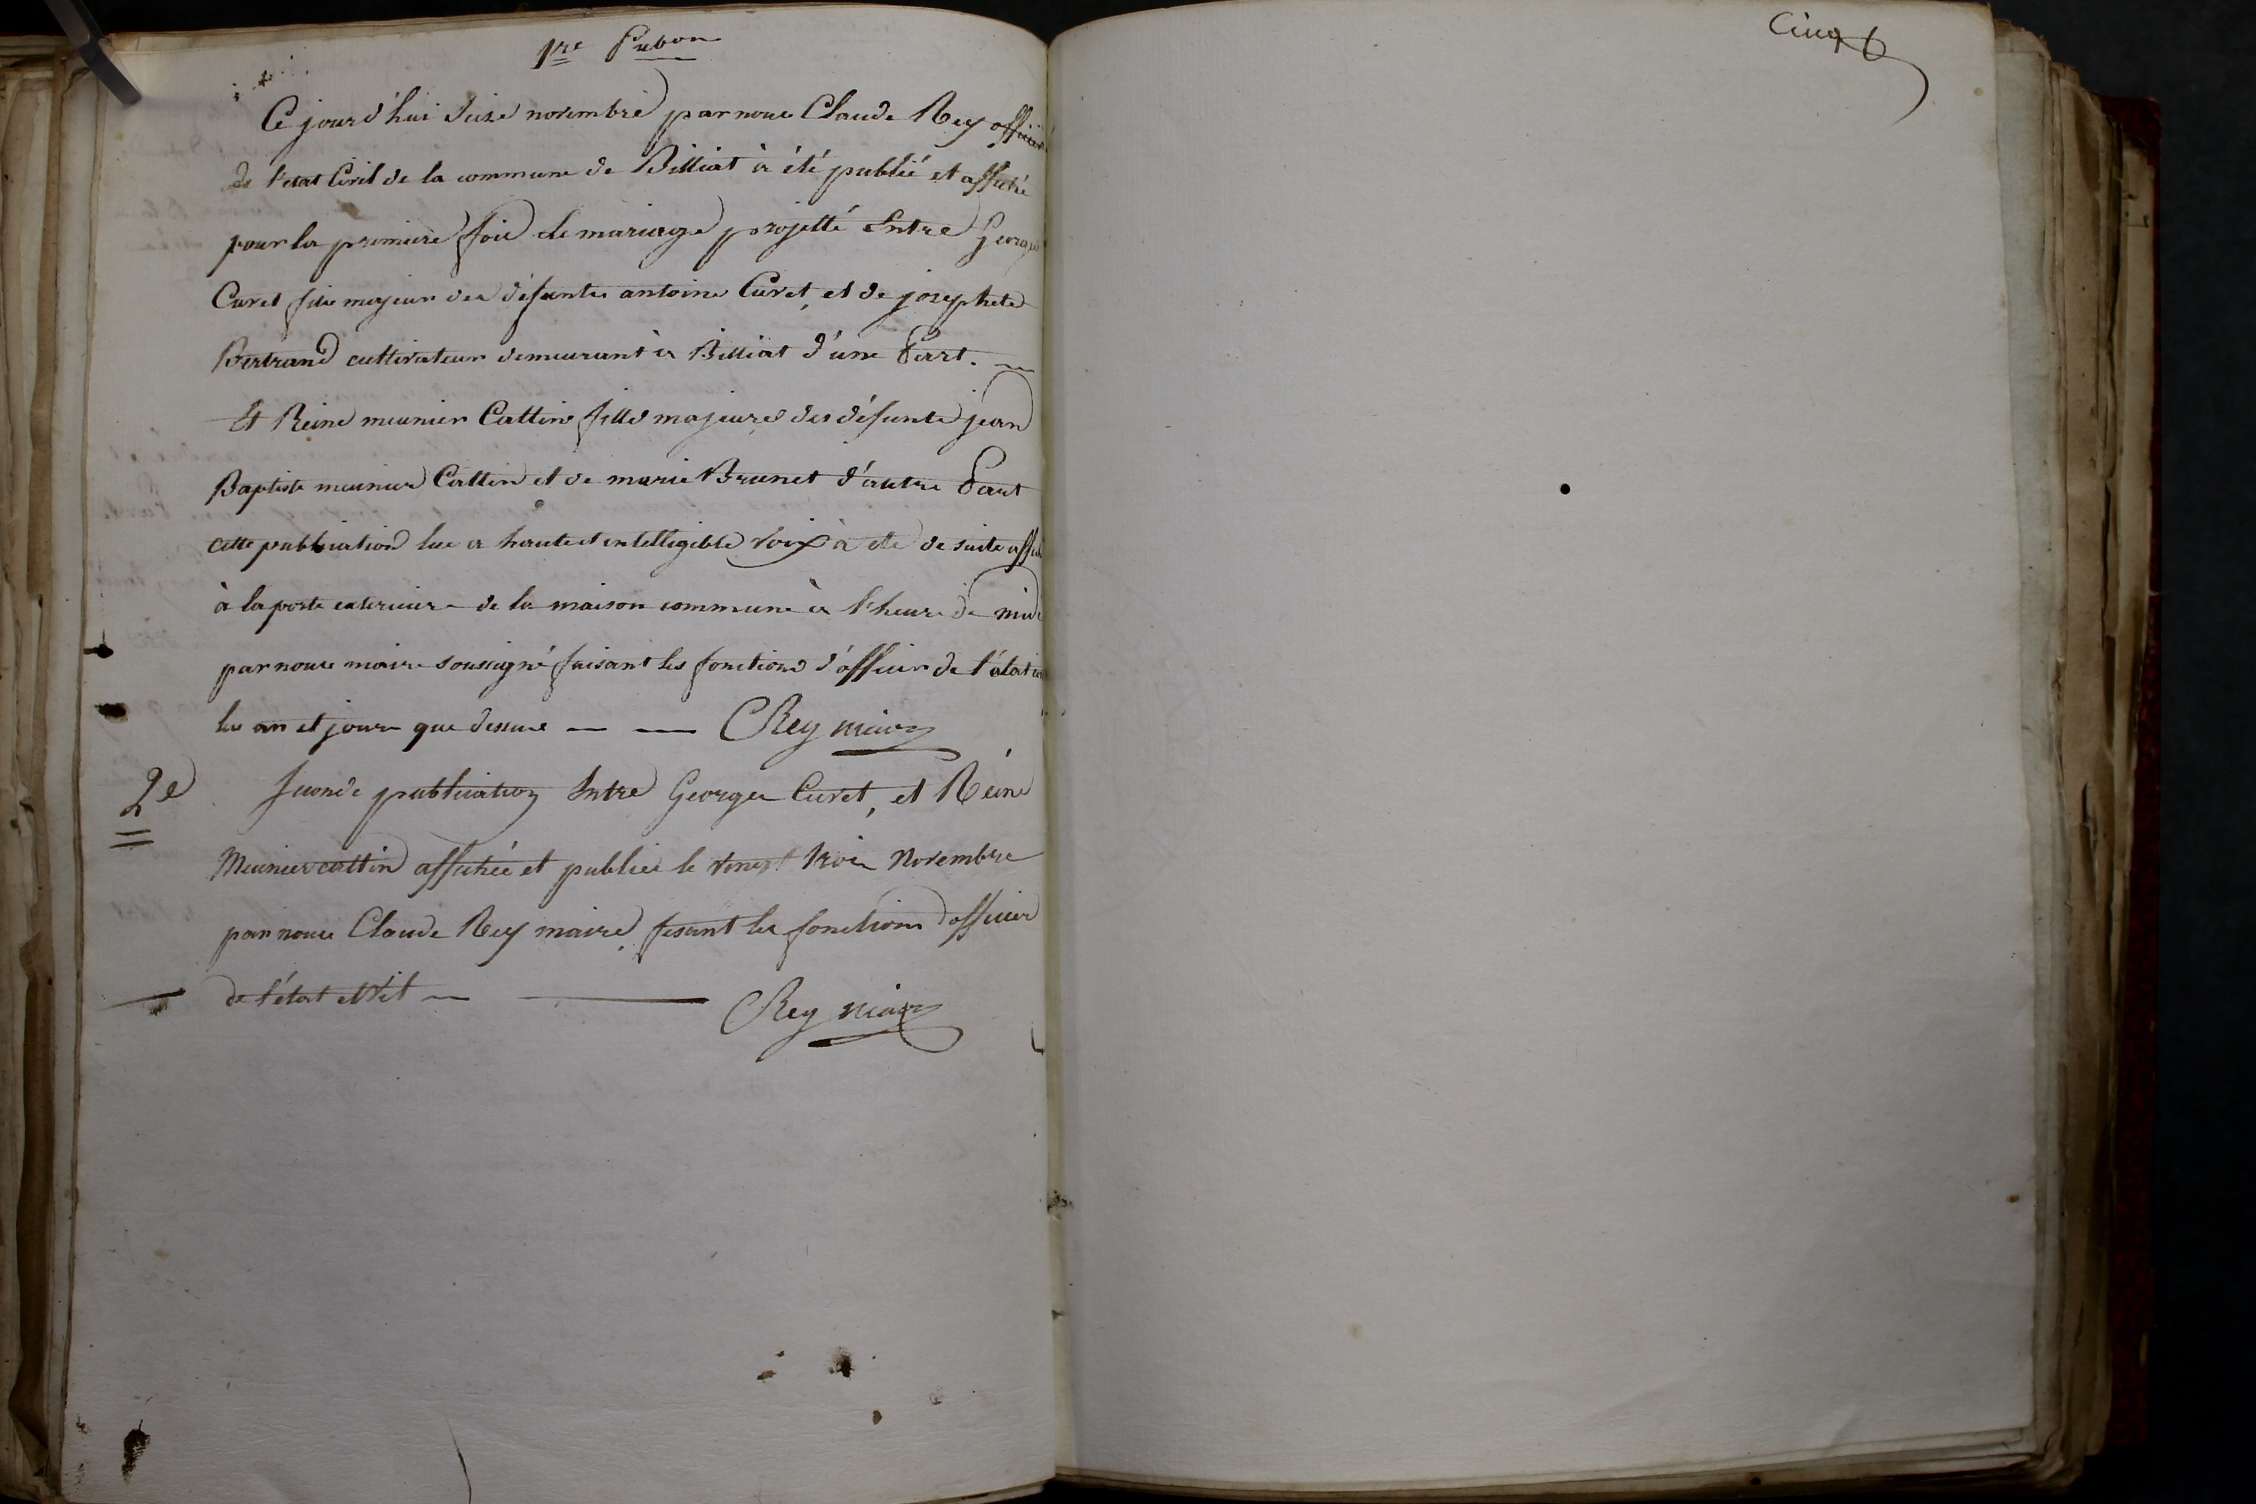 1re Pubon
Ce jourd'hui seize novembre par nous Claude Rey officier
de l'etat Civil de la commune de Billiat à été publié et affiché
pour la premiere fois le mariage projetté Entre George
Curet fils majeur des défunts antoine Curet, et de josephete
Bertrand cultivateur demeurant à Billiat d'une Part.
Et Reine meunier Cattin fille majeure des défunts jean
Baptiste meunier Cattin et de marie Brunet d'autre Part
cette publication lue a haute et intelligible voix à été de suite
à la porte exterieure de la maison commune à l'heure de midi
par nous maire soussigné faisant les fonctions d'officier de l'état
les an et jour que dessus — — CRey maire
2e
seconde publication Entre George Curet, et Réine
Meunier cattin affichée et publiée le vingt trois Novembre
par nous Claude Rey maire fesant les fonctions d'officier
de l'état civil — — CRey maire
Cinq